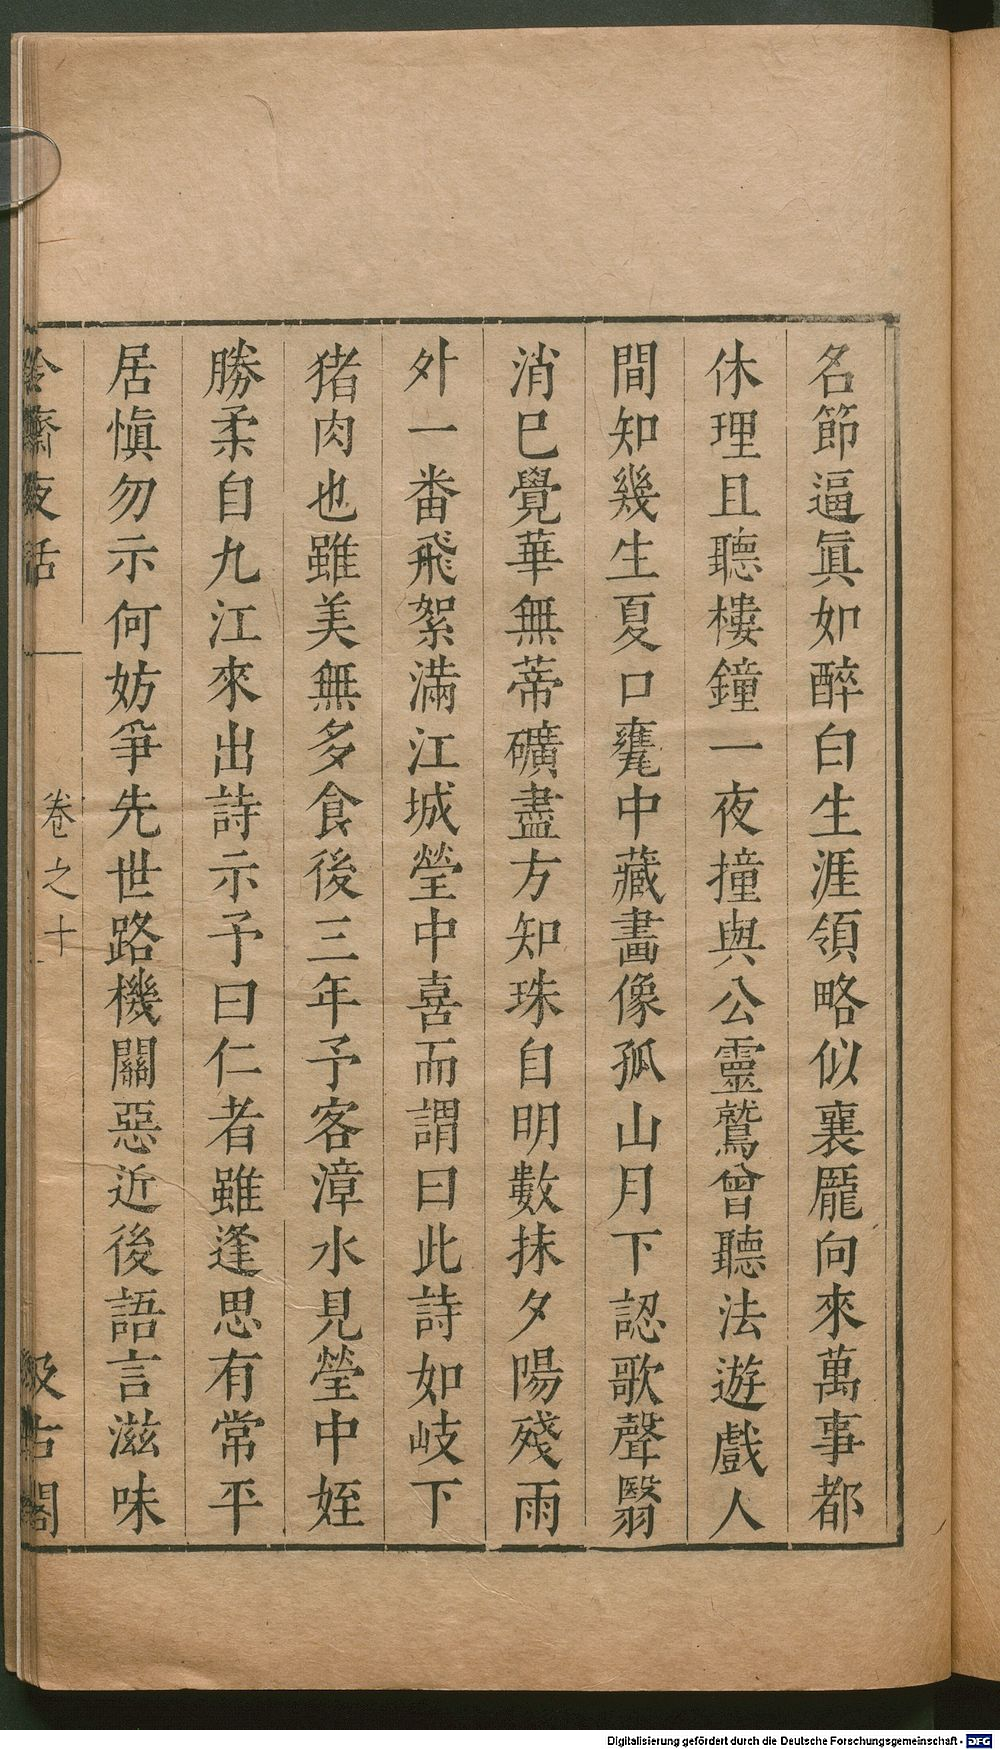 名節逼眞如醉白生涯領略似襄龎向來萬事都
休理且聽樓鐘一夜撞與公靈鷲曾聽法遊戲人
間知幾生夏口甕中藏畫像孤山月下認歌聲翳
消巳覺華無蒂礦盡方知珠自明數抹夕陽殘雨
外一番飛絮滿江城瑩中喜而謂曰此詩如岐下
猪肉也雖美無多食後三年予客漳水見瑩中姪
勝柔自九江來出詩示予曰仁者雖逢思有常平
居愼勿示何妨爭先世路機關惡近後語言滋味
冷齋夜話
卷之十
汲古閣
Digitalisierung gefördert durch die Deutsche Forschungsgemeinschaft - DFG